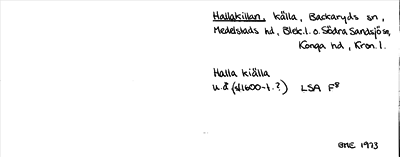 Hallakillan, källa, Backaryds sn,
Medelstads hd, Blek. l. o. Södra Sandsjö sn,
Konga hd, Kron. l.
Halla kiälla
u. å (sl1600-t.?) LSA F8
GME 1973